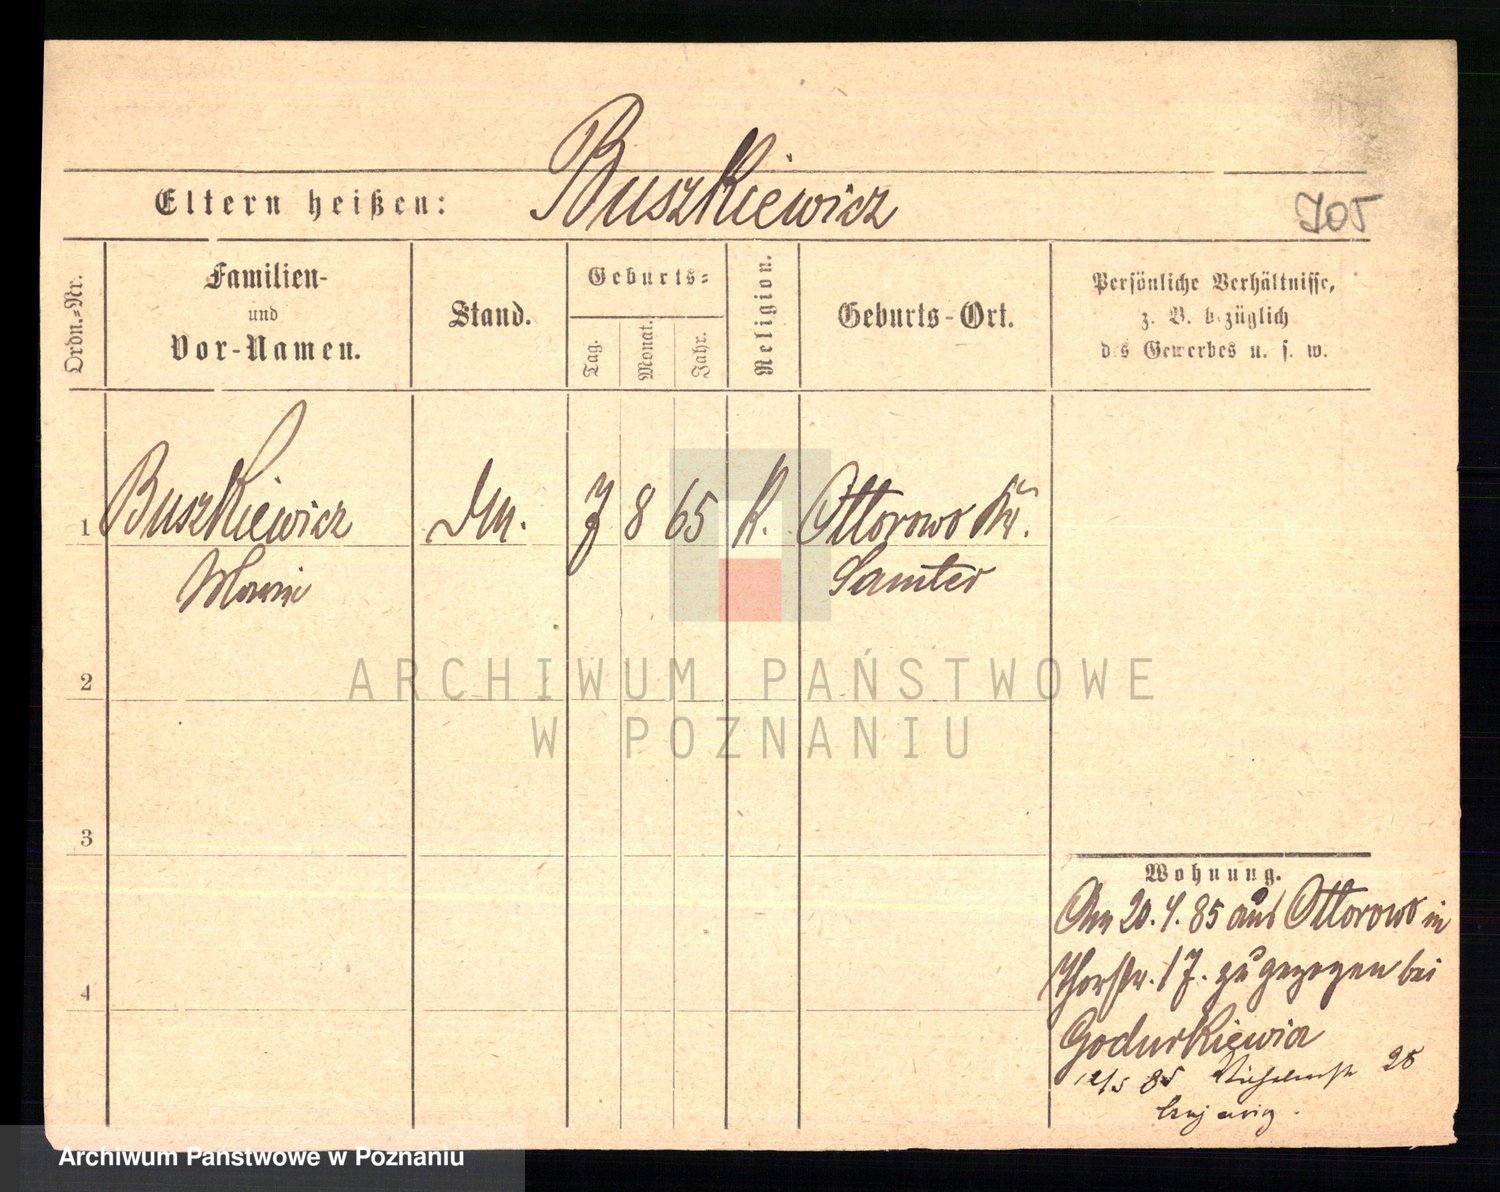 Buszkiewicz
Eltern heißen:
705
Ordn.-Nr.
Familien-
und
Vor-Namen.
Stand.
Geburts-
Tag.
Monat.
Jahr.
Religion.
Geburts-Ort.
Persönliche Verhältnisse,
z. B. bezüglich
des Gewerbes u. s. w.
1 Buszkiewicz DM. 7 8 65 K. Ottorowo Kr.
Marie Samter
2
ARCHIWUM PAŃSTWOWE
W POZNANIU
3
4
Wohnung.
Am 20.4.85 aus Ottorowo in
Thorstr. 17. zugezogen bei
12/5 85 Wilhelmstr 25
Archiwum Państwowe w Poznaniu